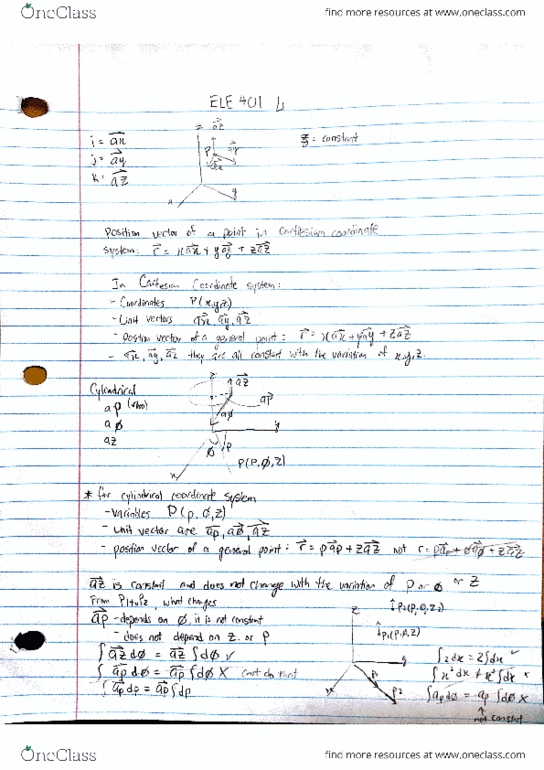 OneClass
find more resources at www.oneclass.com
ELE 401 L
i = ax
j = ay
k = az
z
az
P
ay
ax
y
x
= constant
Position vector of a point in Cartesian coordinate
system: r = xax + yay + zaz
In Cartesian Coordinate system:
- Coordinates P(x,y,z)
- Unit vectors ax, ay, az
- Position vector of a general point: r = xax + yay + zaz
- ax, ay, az they are all constant with the variation of x,y,z.
Cylindrical
aρ (rho)
aø
az
z
az
aρ
aø
y
ø
ρ
x
P(ρ,ø,z)
* for cylindrical coordinate system
- variables P(ρ,ø,z)
- unit vector are aρ, aø, az
- position vector of a general point: r = ρaρ + zaz not r = ρaρ + øaø + zaz
az is constant and does not change with the variation of ρ or ø or z
From P1 to P2, what changes
aρ - depends on ø, it is not constant
- does not depend on z or ρ
∫ az dø = az ∫dø ✓
∫ aρ dø = aρ ∫dø X cant do that
∫ aρ dρ = aρ ∫dρ
z
y
x
P1
P2
∫2dx = 2∫dx ✓
∫x²dx ≠ x²∫dx
∫aρdø = aρ∫dø X
not constant
OneClass
find more resources at www.oneclass.com